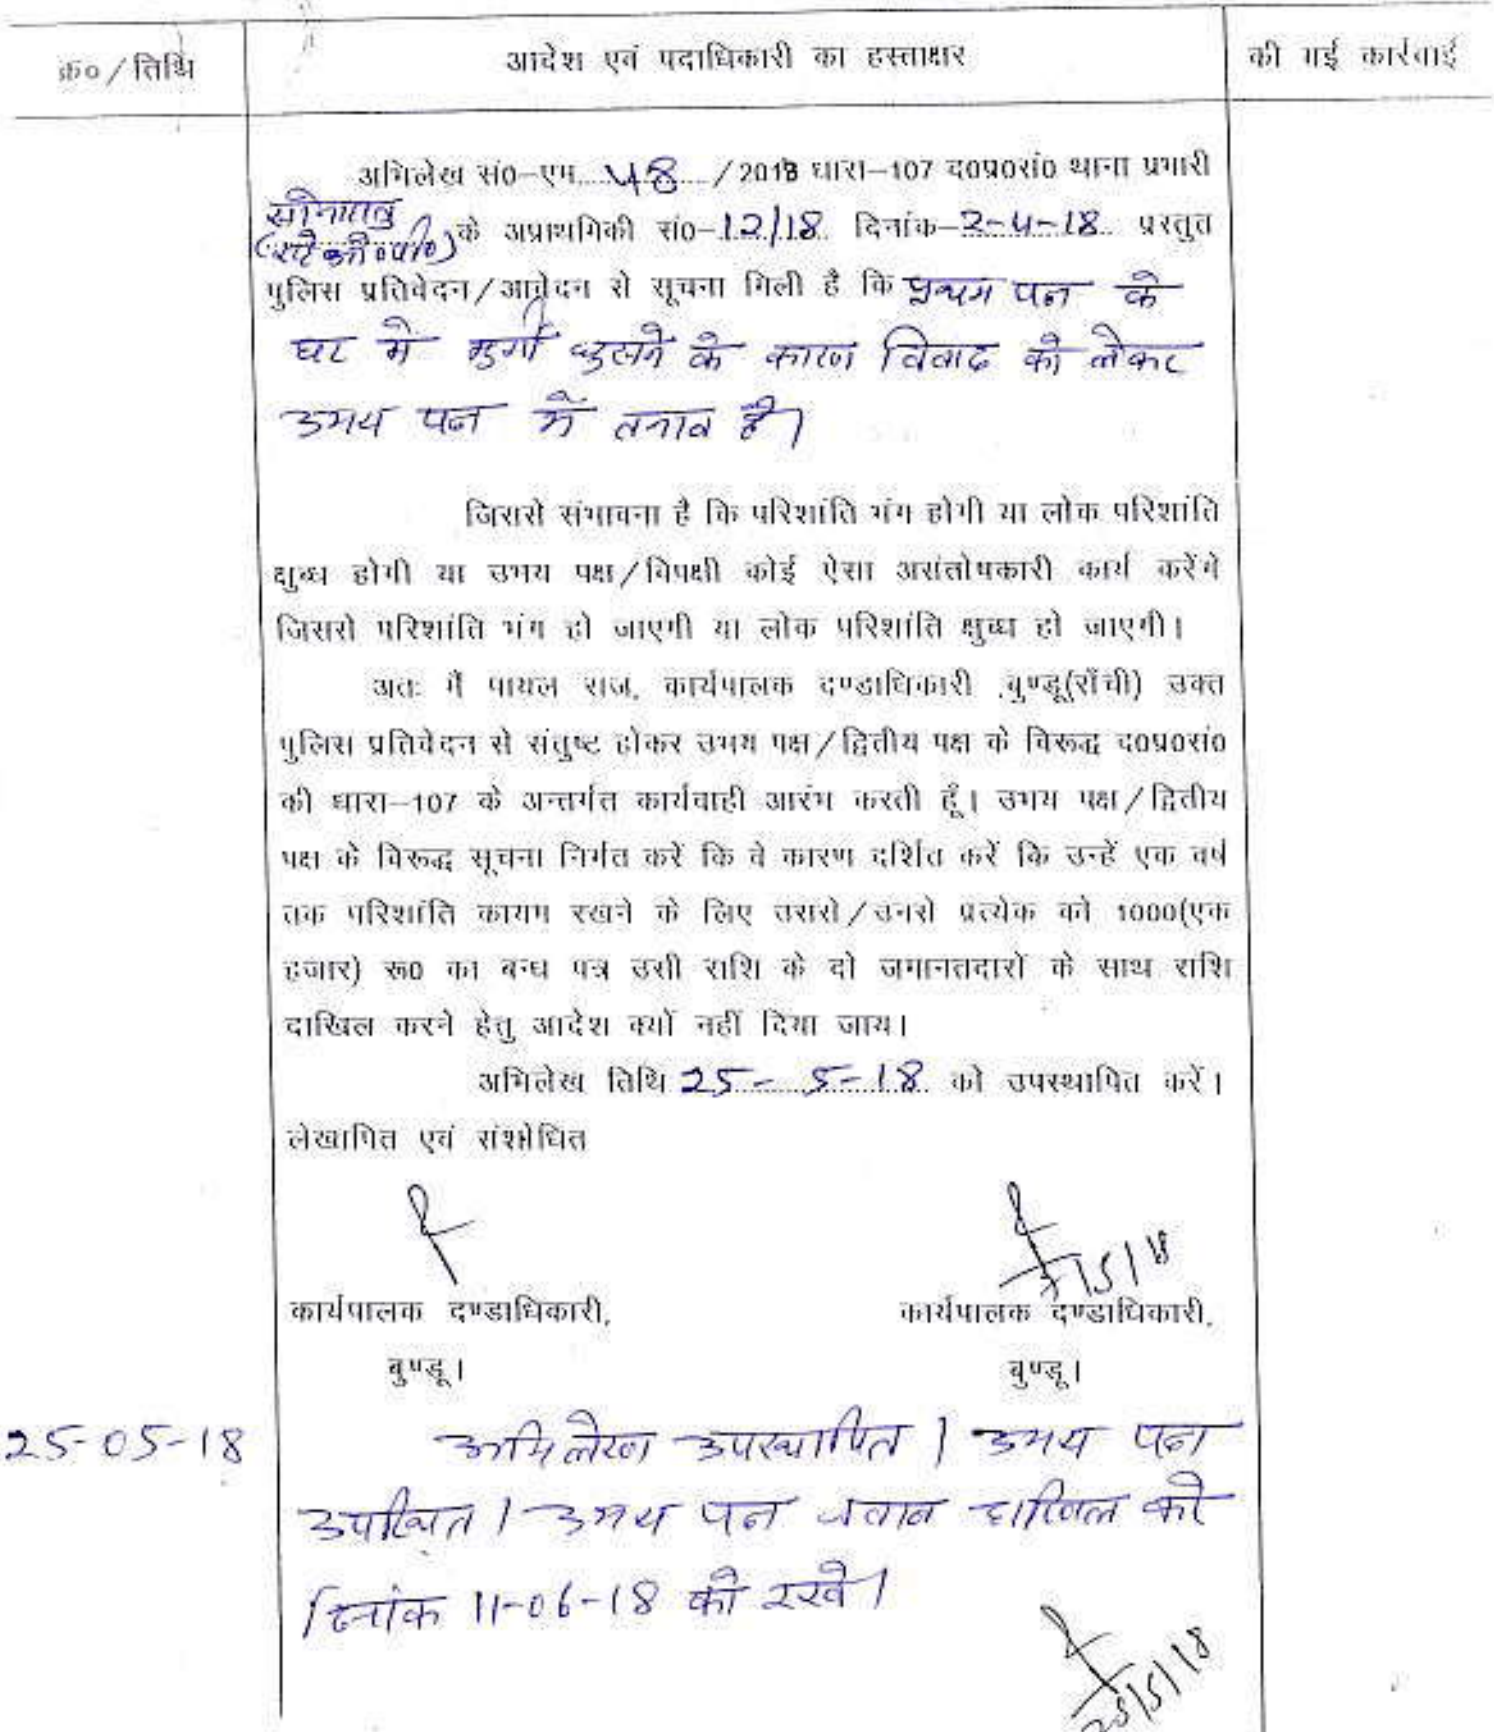 क्र०/तिथि
आदेश एवं पदाधिकारी का हस्ताक्षर
की गई कार्रवाई
अभिलेख सं0-एम. 48 /2018 धारा-107 द0प्र0सं0 थाना प्रभारी
सोनाहातु
(राहे ओ०पी०) के अप्राथमिकी सं0-12/18 दिनांक-2-4-18 प्रस्तुत
पुलिस प्रतिवेदन/आवेदन से सूचना मिली है कि प्रथम पक्ष के
घर में मुर्गी घुसने के कारण विवाद को लेकर
उभय पक्ष में तनाव है।
जिससे संभावना है कि परिशांति भंग होगी या लोक परिशांति
क्षुब्ध होगी या उभय पक्ष/विपक्षी कोई ऐसा असंतोषकारी कार्य करेंगे
जिससे परिशांति भंग हो जाएगी या लोक परिशांति क्षुब्ध हो जाएगी।
अतः मैं पायल राज, कार्यपालक दण्डाधिकारी ,बुण्डू(राँची) उक्त
पुलिस प्रतिवेदन से संतुष्ट होकर उभय पक्ष/द्वितीय पक्ष के विरूद्ध द0प्र0सं0
की धारा-107 के अन्तर्गत कार्यवाही आरंभ करती हूँ। उभय पक्ष/द्वितीय
पक्ष के विरूद्ध सूचना निर्गत करें कि वे कारण दर्शित करें कि उन्हें एक वर्ष
तक परिशांति कायम रखने के लिए उससे/उनसे प्रत्येक को 1000(एक
हजार) रू0 का बन्ध पत्र उसी राशि के दो जमानतदारों के साथ राशि
दाखिल करने हेतु आदेश क्यों नहीं दिया जाय।
अभिलेख तिथि 25-5-18 को उपस्थापित करें।
लेखापित एवं संशोधित
कार्यपालक दण्डाधिकारी,
बुण्डू।
7/5/18
कार्यपालक दण्डाधिकारी,
बुण्डू।
25-05-18
अभिलेख उपस्थापित। उभय पक्ष
उपस्थित। उभय पक्ष जवाब दाखिल करे
दिनांक 11-06-18 को रखे।
25/5/18